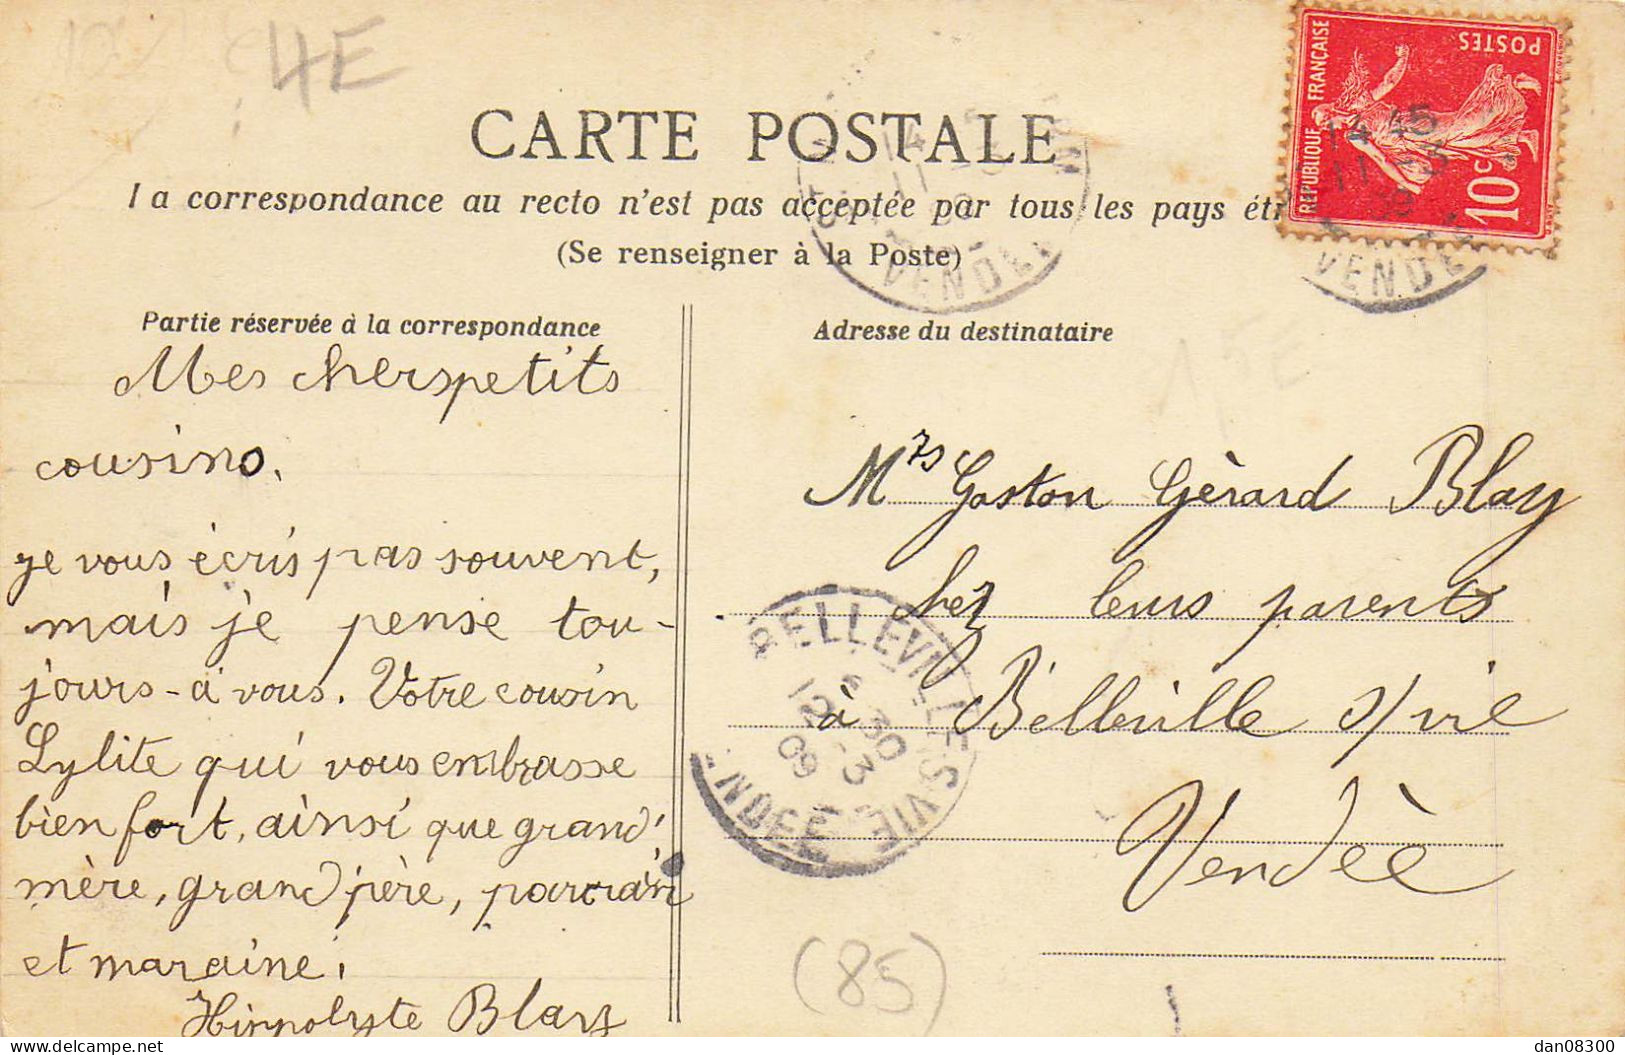 4E
CARTE POSTALE
La correspondance au recto n'est pas acceptée par tous les pays étr
(Se renseigner à la Poste)
RÉPUBLIQUE FRANÇAISE
POSTES
10c
14 45
11 -3
09
VENDEE
14
11 -3
09
VENDEE
Partie réservée à la correspondance
Mes chers petits
cousins,
je vous écris pas souvent,
mais je pense tou-
jours - à vous. Votre cousin
Lylite qui vous embrasse
bien fort, ainsi que grand'
mère, grand père, parrain
et marraine.
Hippolyte Blay
Adresse du destinataire
Mrs Gaston Gèrard Blay
chez leurs parents
à Bélleville s/vie
Vendèe
BELLEVILLE S VIE
12 30
-3
09
VENDEE
(85)
dan08300